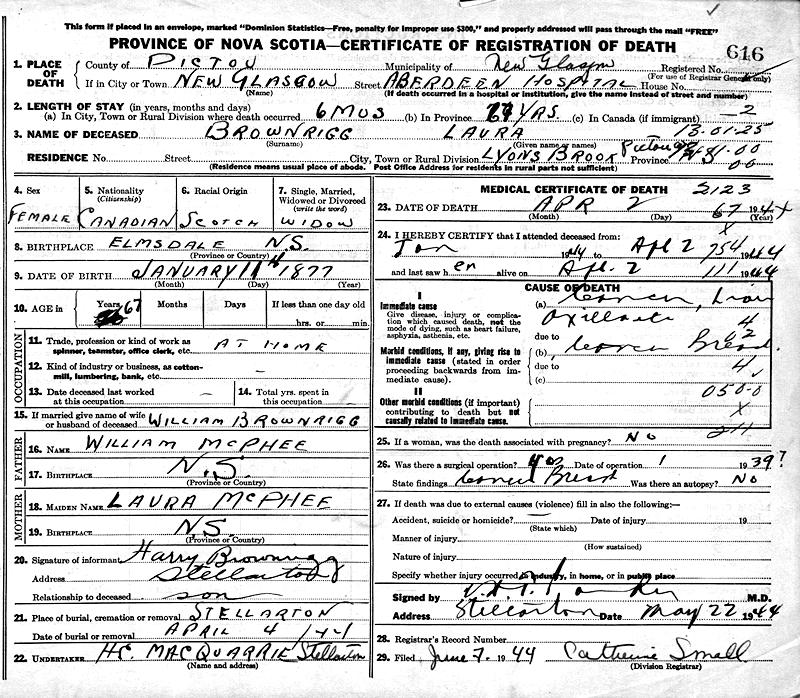 This form if placed in an envelope, marked "Dominion Statistics—Free, penalty for improper use $300," and properly addressed will pass through the mail "FREE"
PROVINCE OF NOVA SCOTIA—CERTIFICATE OF REGISTRATION OF DEATH
616
1. PLACE OF DEATH County of PICTOU Municipality of New Glasgow Registered No.
(For use of Registrar General only)
If in City or Town NEW GLASGOW Street ABERDEEN HOSPITAL House No.
(Name) (If death occurred in a hospital or institution, give the name instead of street and number)
2. LENGTH OF STAY (in years, months and days)
(a) In City, Town or Rural Division where death occurred 6 MOS (b) In Province YRS. (c) In Canada (if immigrant) —2
3. NAME OF DECEASED BROWNRIGG LAURA 13-01-25
(Surname) (Given name or names)
RESIDENCE No. Street City, Town or Rural Division LYONS BROOK Pictou Province N S
(Residence means usual place of abode. Post Office Address for residents in rural parts not sufficient) 00
4. Sex
FEMALE
5. Nationality (Citizenship)
CANADIAN
6. Racial Origin
SCOTCH
7. Single, Married, Widowed or Divorced (write the word)
WIDOW
8. BIRTHPLACE ELMSDALE N.S.
(Province or Country)
9. DATE OF BIRTH JANUARY 11th 1877
(Month) (Day) (Year)
10. AGE in Years 67 Months Days If less than one day old
hrs. or min.
OCCUPATION
11. Trade, profession or kind of work as spinner, teamster, office clerk, etc. AT HOME
12. Kind of industry or business, as cotton-mill, lumbering, bank, etc. –
13. Date deceased last worked at this occupation –
14. Total yrs. spent in this occupation –
15. If married give name of wife or husband of deceased WILLIAM BROWNRIGG
FATHER
16. NAME WILLIAM MCPHEE
17. BIRTHPLACE N.S.
(Province or Country)
MOTHER
18. MAIDEN NAME LAURA MCPHEE
19. BIRTHPLACE N.S.
(Province or Country)
20. Signature of informant Harry Brownrigg
Address Stellarton
Relationship to deceased son
21. Place of burial, cremation or removal STELLARTON
Date of burial or removal APRIL 4 /44
22. UNDERTAKER H.C. MACQUARRIE Stellarton
(Name and address)
MEDICAL CERTIFICATE OF DEATH 2123
23. DATE OF DEATH APR 2 67 1944
(Month) (Day) (Year)
24. I HEREBY CERTIFY that I attended deceased from:
Jan 1944 to Apl 2 754 1944
and last saw her alive on Apl. 2 111 1944
CAUSE OF DEATH
I
Immediate cause
Give disease, injury or complication which caused death, not the mode of dying, such as heart failure, asphyxia, asthenia, etc.
(a) Cancer,
due to
Morbid conditions, if any, giving rise to immediate cause (stated in order proceeding backwards from immediate cause).
(b) Cancer Breast
due to
(c)
II
Other morbid conditions (if important) contributing to death but not causally related to immediate cause.
050-0
X
25. If a woman, was the death associated with pregnancy? No
26. Was there a surgical operation? yes Date of operation 1939?
State findings Cancer Breast Was there an autopsy? No
27. If death was due to external causes (violence) fill in also the following:—
Accident, suicide or homicide? — Date of injury 19
(State which)
Manner of injury
(How sustained)
Nature of injury
Specify whether injury occurred in industry, in home, or in public place
Signed by M.D.
Address Stellarton Date May 22 1944
28. Registrar's Record Number
29. Filed June 7. 1944 Catherine Small
(Division Registrar)